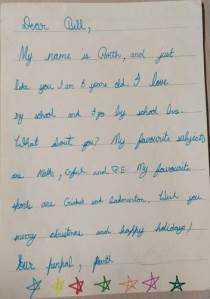 Dear Bill,
My name is Parth, and just
like you I am 6 years old. I love
my school and I go by school bus.
What about you? My favourite subjects
are Maths, English and P.E. My favourite
sports are Cricket and badminton. Wish you
merry christmas and happy holidays!
Your penpal, parth